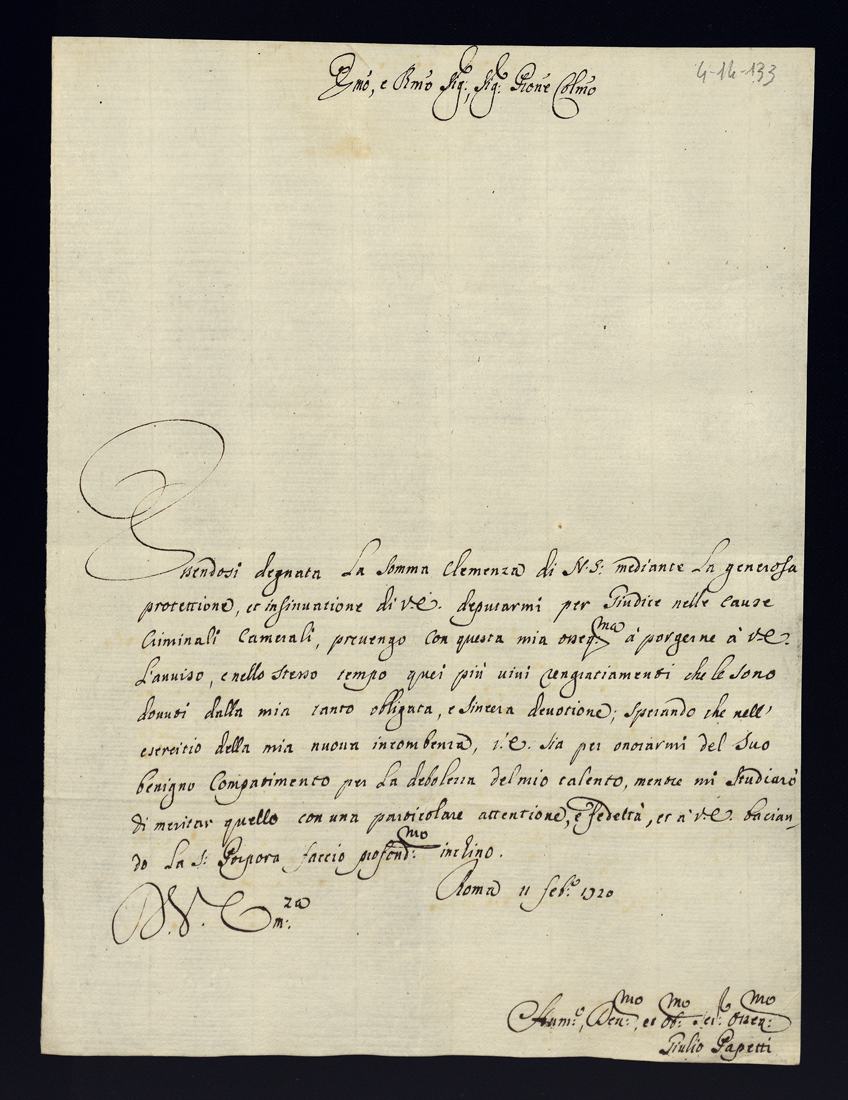 4-14-133
Emo, e Rmo Sig:, Sig: Prone Colmo
Essendosi degnata la somma Clemenza di N.S: mediante la generosa
protettione, et insinuatione di V.E. deputarmi per Giudice nelle cause
Criminali Camerali, prevengo con questa mia osseqma à porgerne à V.E.
l'avviso, e nello stesso tempo quei più vivi rengratiamenti che le sono
dovuti dalla mia tanto obligata, e sincera devotione; sperando che nell'
esercitio della mia nuova incombenza, V.E. sia per onorarmi del suo
benigno Compatimento per la debolezza del mio talento, mentre mi studiarò
di meritar quello con una particolare attentione, e fedeltà, et à V.E. bacian
do la S: Porpora faccio profond:mo inchino.
Roma 11 feb:o 1720
D. V. Em:za
Hum:o, Dev:mo, et Ob:mo Ser: Osseq:mo
Giulio Papetti